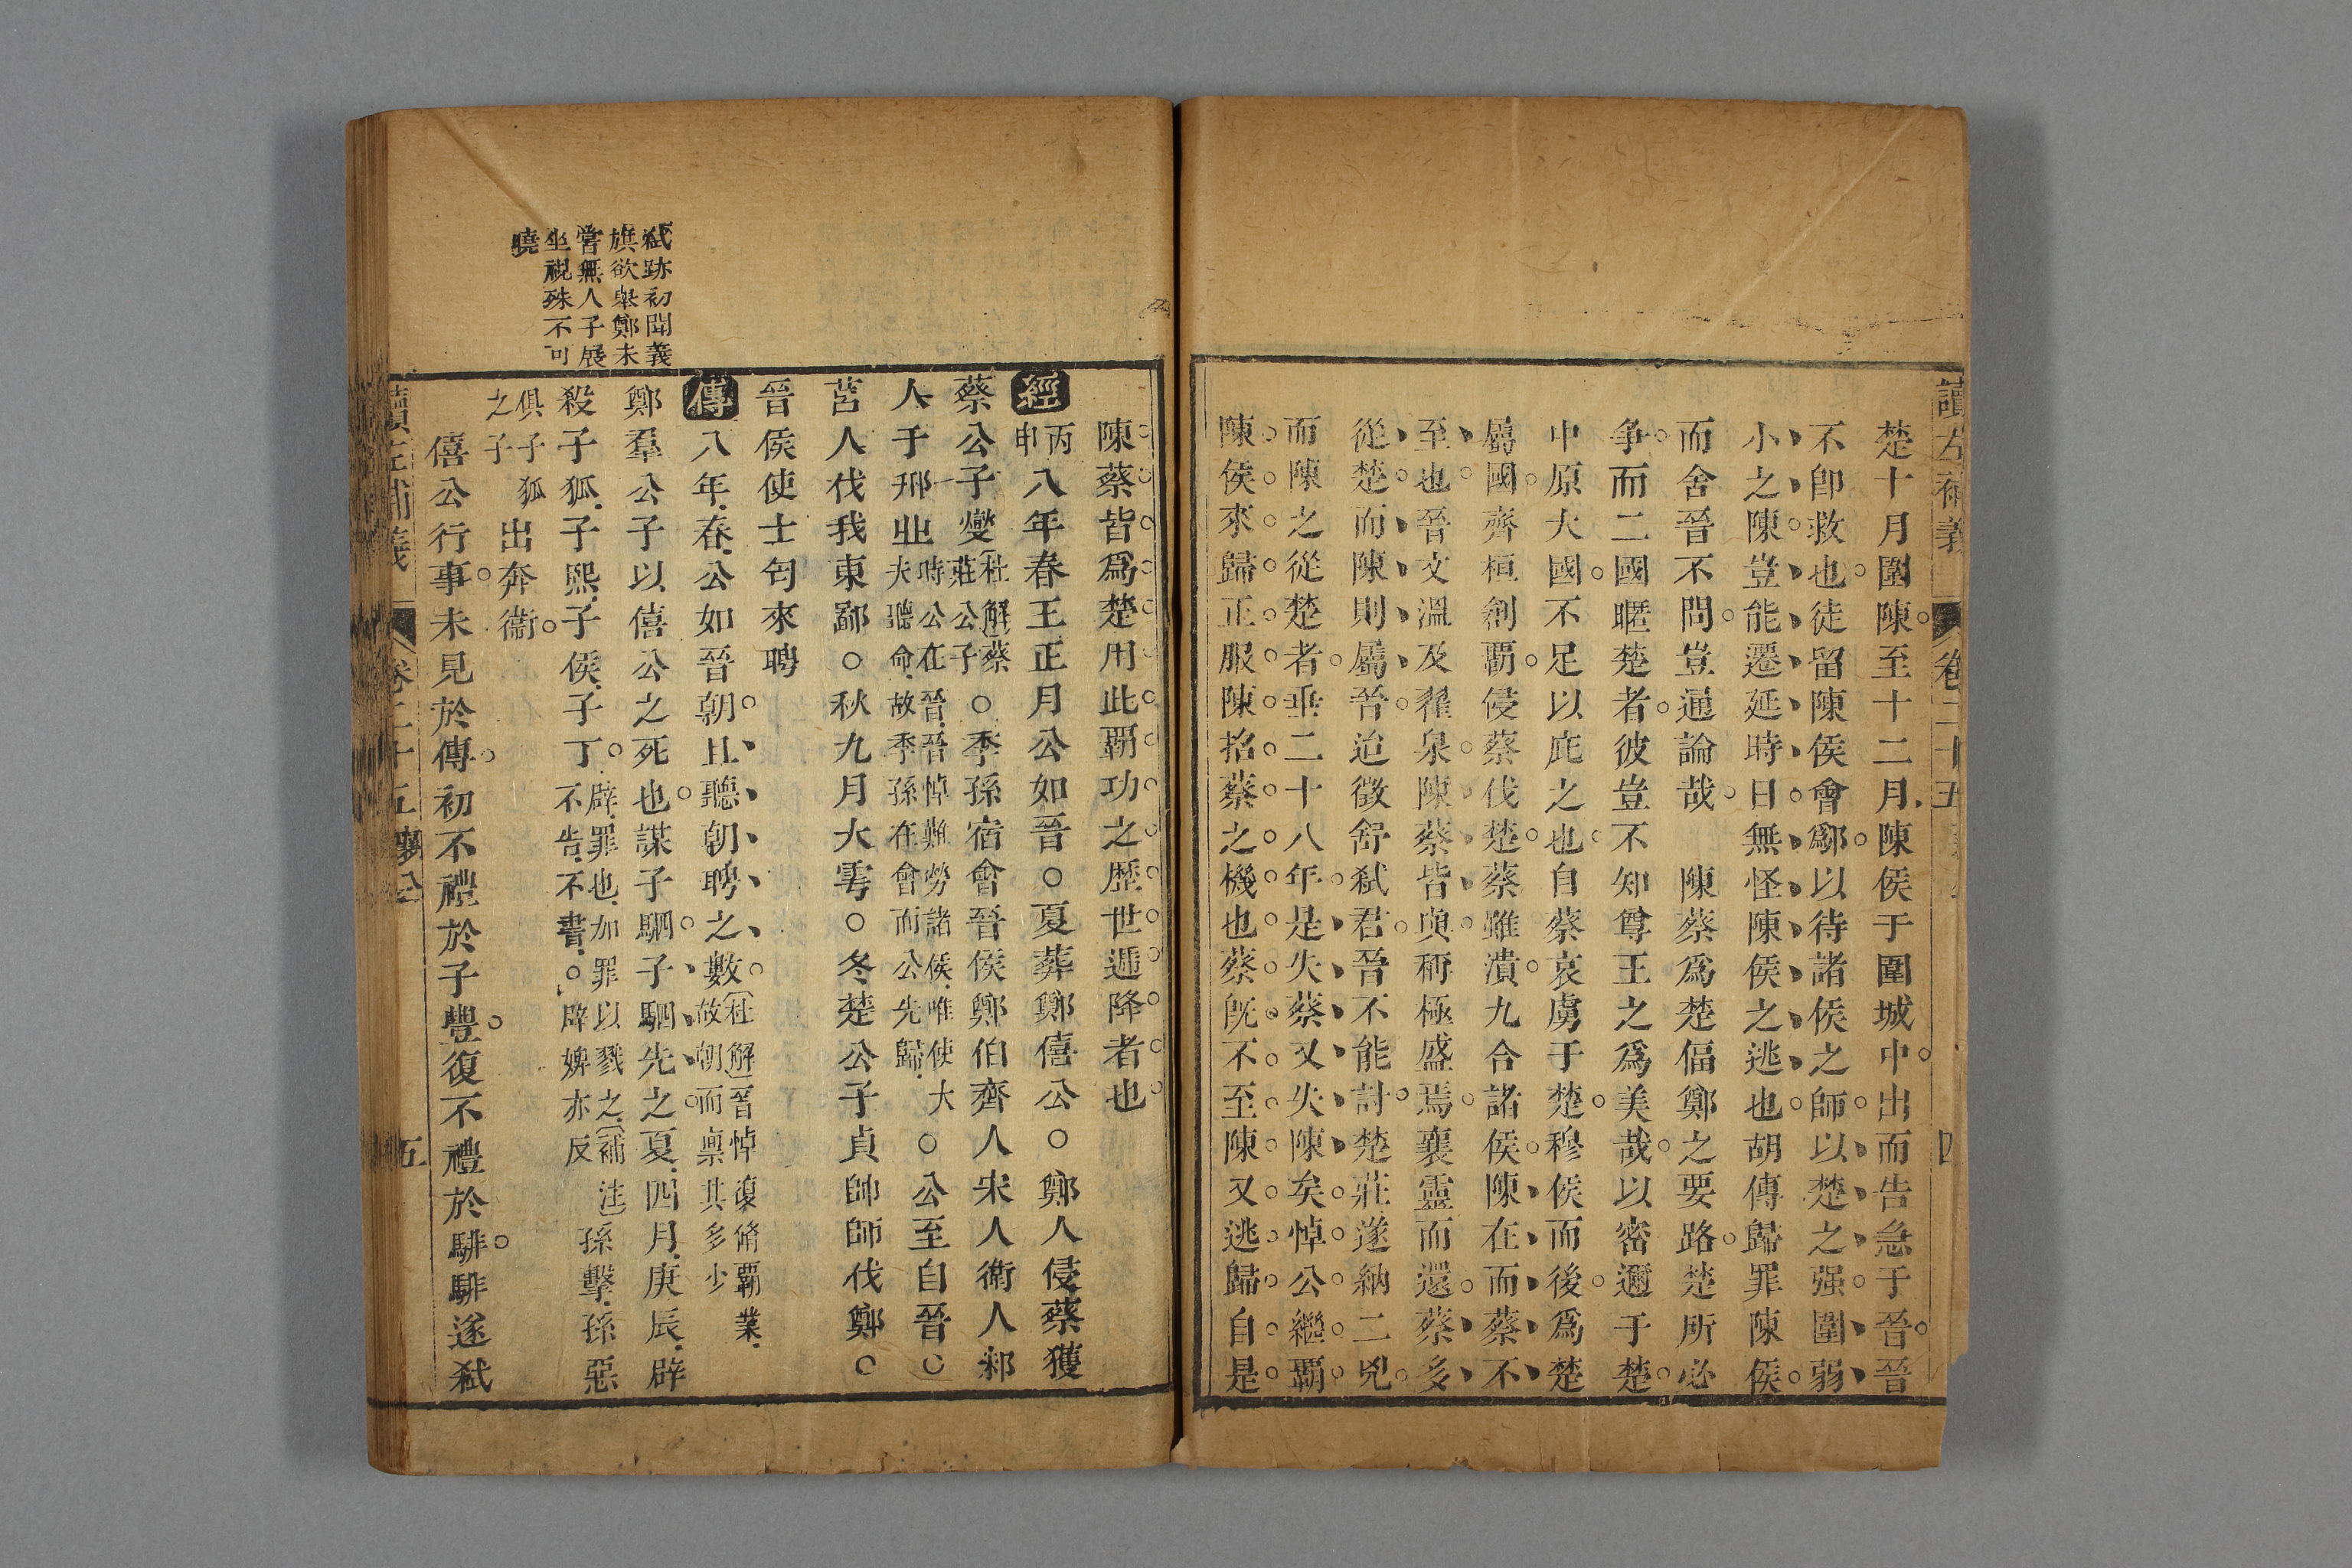 讀左補義
卷二十五
四
楚十月圍陳至十二月陳侯于圍城中出而告急于晉晉
不卽救也徒留陳侯會鄬以待諸侯之師以楚之强圍弱
小之陳豈能遷延時日無怪陳侯之逃也胡傳歸罪陳侯
而舍晉不問豈通論哉 陳蔡爲楚偪鄭之要路楚所必
争而二國暱楚者彼豈不知尊王之爲美哉以密邇于楚
中原大國不足以庇之也自蔡哀虜于楚穆侯而後爲楚
屬國齊桓創覇侵蔡伐楚蔡雖潰九合諸侯陳在而蔡不
至也晉文溫及翟泉陳蔡皆與稱極盛焉襄靈而還蔡多
從楚而陳則屬晉迨徵舒弑君晉不能討楚莊遂納二兇
而陳之從楚者垂二十八年是失蔡又失陳矣悼公繼覇
陳侯來歸正服陳招蔡之機也蔡旣不至陳又逃歸自是
陳蔡皆爲楚用此覇功之歷世遞降者也
經丙申八年春王正月公如晉○夏葬鄭僖公○鄭人侵蔡獲
蔡公子燮(杜解)蔡莊公子○季孫宿會晉侯鄭伯齊人宋人衛人邾
人于邢丘時公在晉晉悼難勞諸侯唯使大夫聽命故季孫在會而公先歸○公至自晉○
莒人伐我東鄙○秋九月大雩○冬楚公子貞帥師伐鄭○
晉侯使士匄來聘
傳八年春公如晉朝且聽朝聘之數(杜解)晉悼復脩覇業故朝而禀其多少
鄭羣公子以僖公之死也謀子駟子駟先之夏四月庚辰辟
殺子狐子熙子侯子丁辟罪也加罪以戮之(補注)不告不書○辟婢亦反孫擊孫惡
出奔衞俱子狐之子
僖公行事未見於傳初不禮於子豐復不禮於騑騑遂弑
弑跡初聞義
旗欲舉鄭未
嘗無人子展
坐視殊不可
曉
讀左補義
卷二十五
襄公
五